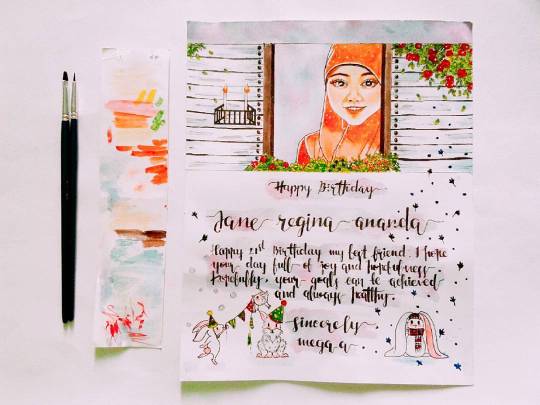 Happy Birthday
Jane regina ananda
Happy 21st Birthday my best friend. I hope
your day full of joy and hopefulness
hopefully, your goals can be achieved
and always healthy.
sincerely
mega-a